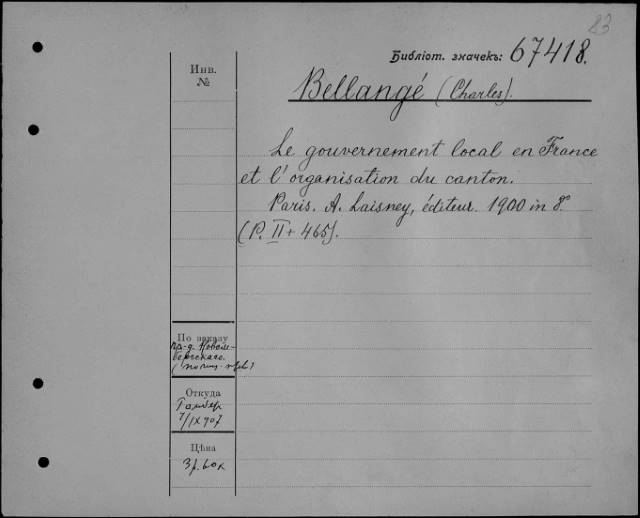 83
Библіот. значекъ: 67418.
Инв.
№
Bellangé (Charles).
Le gouvernement local en France
et l'organisation du canton.
Paris. A. Laisney, éditeur. 1900 in 8°
(P. II + 465).
По заказу
пр-д. Новом-
бергскаго.
Откуда
7/IX 907
Цѣна
3 р. 60 к